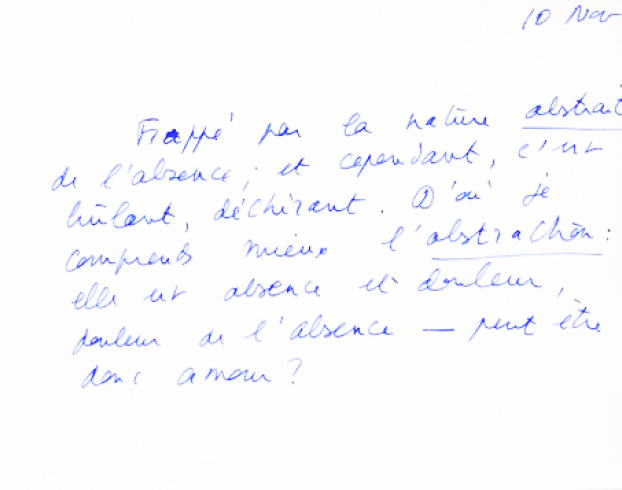 10 Nov
Frappé par la nature abstrait
de l'absence ; et cependant, c'est
brûlant, déchirant. D'où je
comprends mieux l'abstraction :
elle est absence et douleur,
douleur de l'absence — peut être
donc amour ?